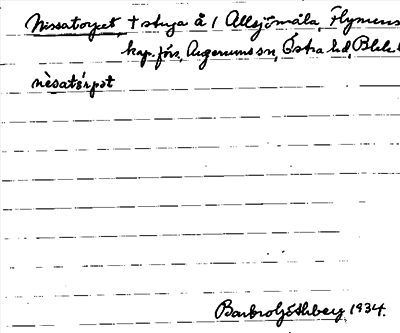 Nissatorpet, † stuga å 1 Allsjömåla, Flymens
kap. förs, Augerums sn, Östra hd, Blek.
nèsatårpət
Barbro Göthberg 1934.